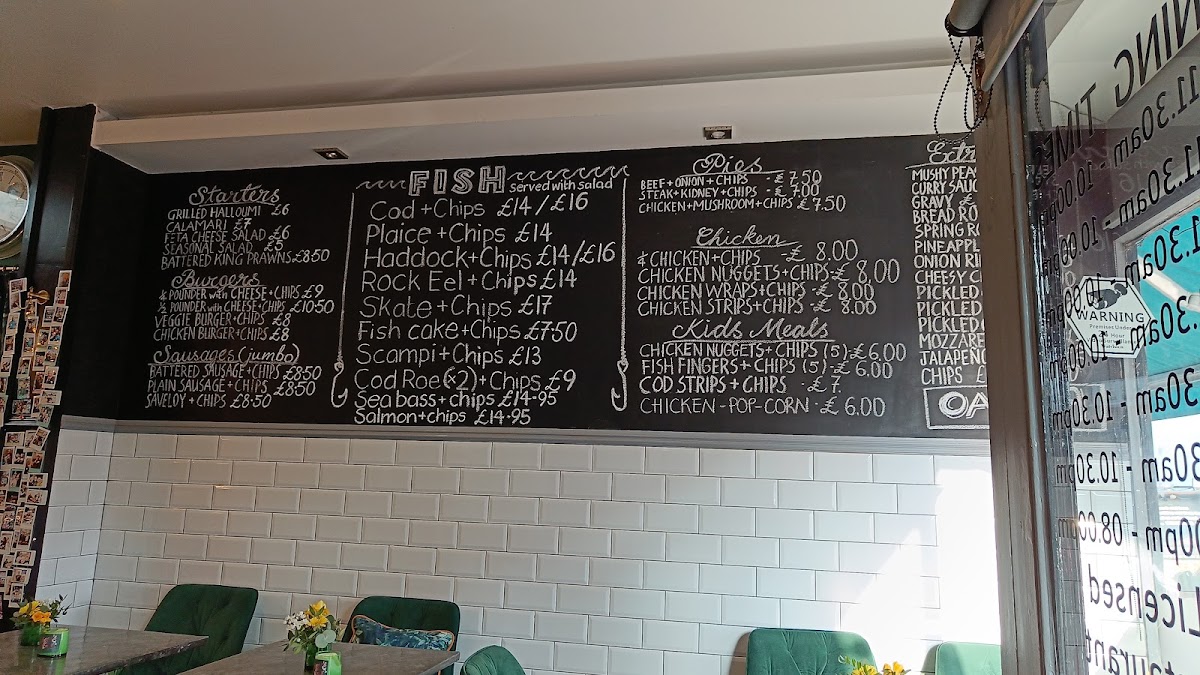 Starters
GRILLED HALLOUMI £6
CALAMARI £7
FETA CHEESE SALAD £6
SEASONAL SALAD £5
BATTERED KING PRAWNS £8·50
Burgers
¼ POUNDER with CHEESE + CHIPS £9
½ POUNDER with CHEESE + CHIPS £10·50
VEGGIE BURGER + CHIPS £8
CHICKEN BURGER + CHIPS £8
Sausages (jumbo)
BATTERED SAUSAGE + CHIPS £8·50
PLAIN SAUSAGE + CHIPS £8·50
SAVELOY + CHIPS £8·50
FISH served with salad
Cod + Chips £14 / £16
Plaice + Chips £14
Haddock + Chips £14/£16
Rock Eel + Chips £14
Skate + Chips £17
Fish cake + Chips £7·50
Scampi + Chips £13
Cod Roe (x2) + Chips £9
Sea bass + chips £14·95
Salmon + chips £14·95
Pies
BEEF + ONION + CHIPS - £7.50
STEAK + KIDNEY + CHIPS - £7.00
CHICKEN + MUSHROOM + CHIPS £7.50
Chicken
¼ CHICKEN + CHIPS - £ 8.00
CHICKEN NUGGETS + CHIPS - £ 8,00
CHICKEN WRAPS + CHIPS - £ 8.00
CHICKEN STRIPS + CHIPS - £ 8.00
Kids Meals
CHICKEN NUGGETS + CHIPS (5) - £6.00
FISH FINGERS + CHIPS (5) - £ 6.00
COD STRIPS + CHIPS - £ 7
CHICKEN - POP - CORN - £ 6.00
Extr
MUSHY PEA
CURRY SAUC
GRAVY £
BREAD RO
SPRING RO
PINEAPPL
ONION RI
CHEESY C
PICKLED
PICKLED
PICKLED
MOZZARE
JALAPEÑO
CHIPS £
OA
NING TIME
11.30am - 10.00pm
11.30am - 10.00pm
1.30am - 10.00pm
30am - 10.00pm
30am - 10.30pm
30am - 10.30pm
00pm - 08.00pm
Licensed
taurant
WARNING